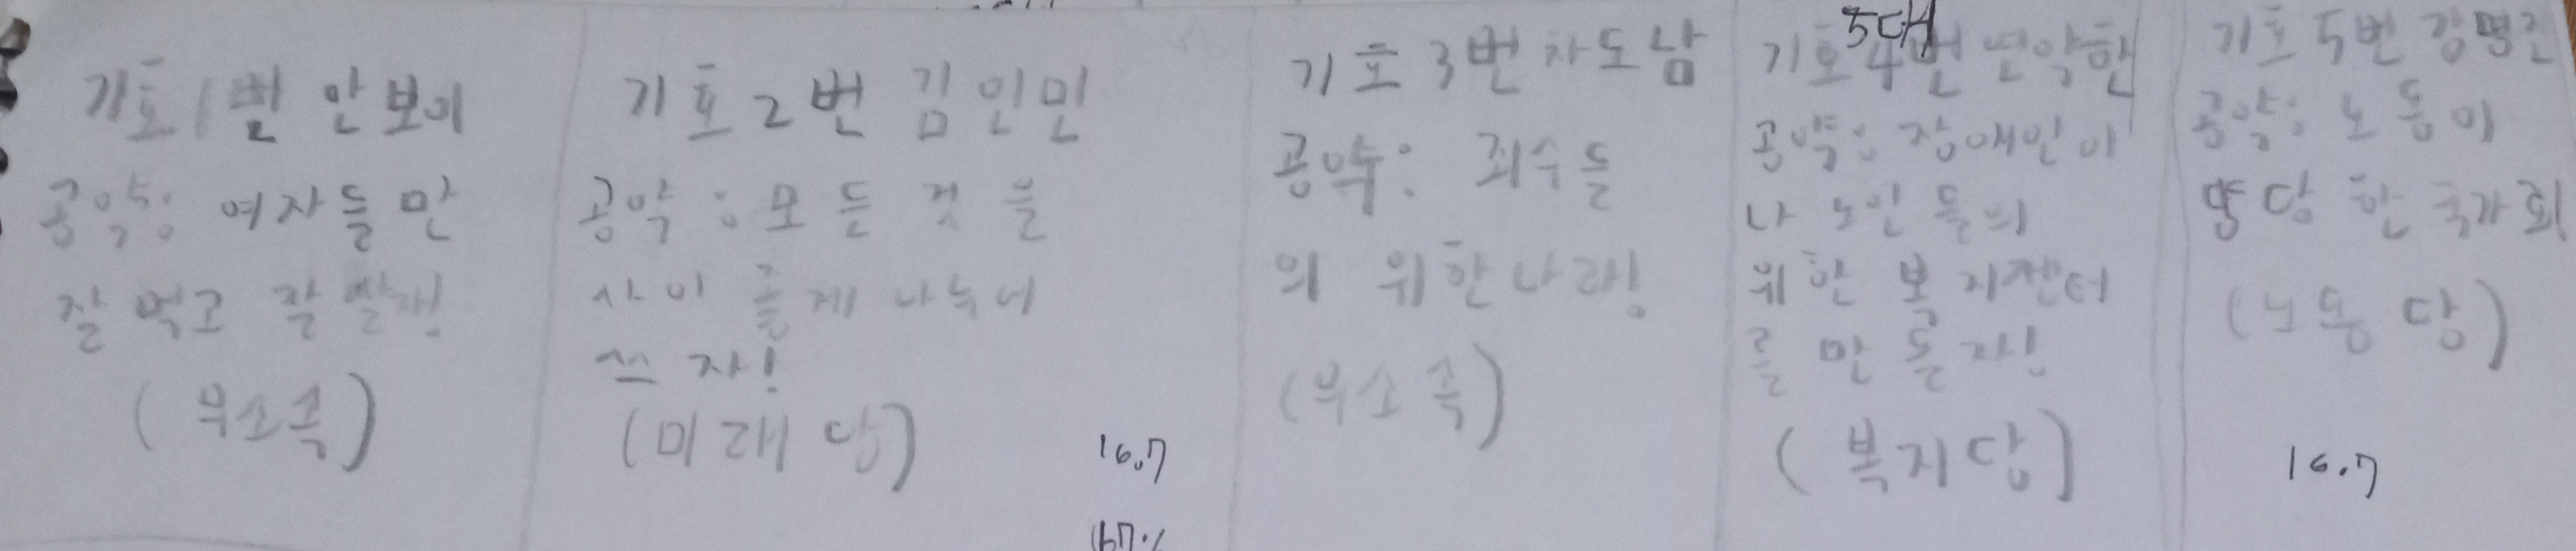 기호1번 안보이
공약: 여자들만
잘 먹고 잘 살재!
(무소속)
기호2번 김인민
공약: 모든 것을
사이 좋게 나누어
쓰자!
(미래당)
16.7
67%
기호3번 차도남
공약: 죄수들
의 위한나라!
(무소속)
5대
기호4번 연약한
공약: 장애인이
나 노인들의
위한 복지센터
를 만들자!
(복지당)
기호5번
공약: 노동이
당한 국가
(노동당)
16.7